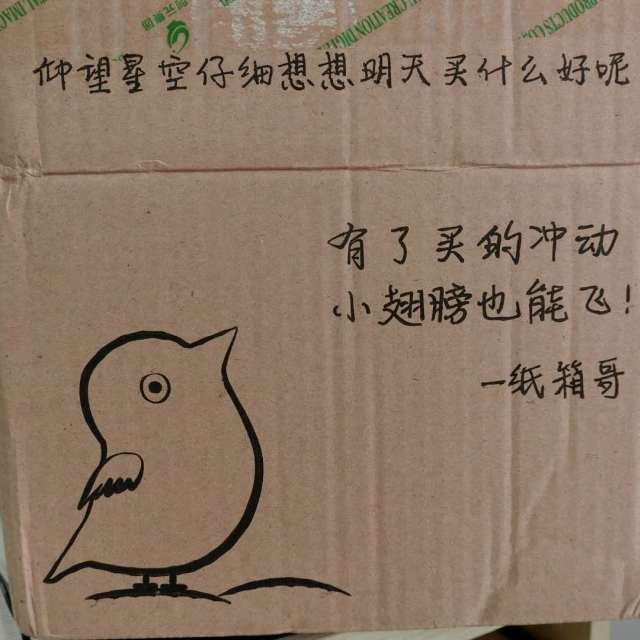 仰望星空仔细想想明天买什么好呢
有了买的冲动
小翅膀也能飞！
—纸箱哥